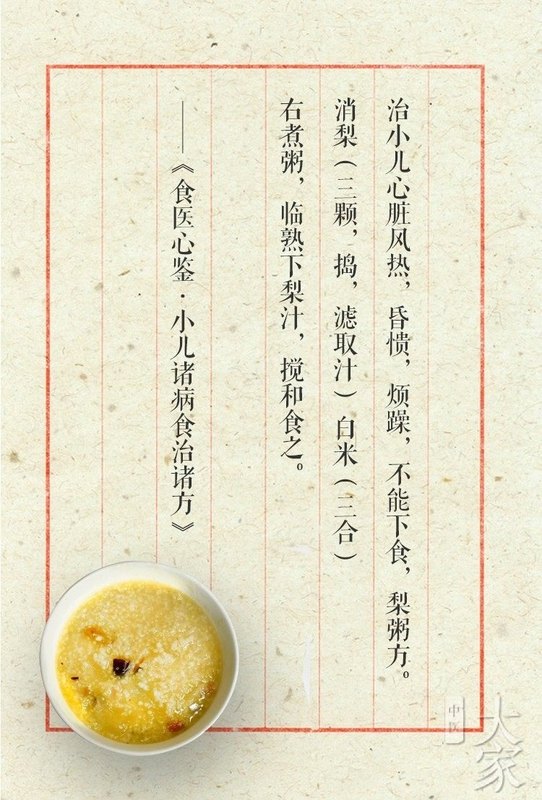 治小儿心脏风热，昏愦，烦躁，不能下食，梨粥方。
消梨（三颗，捣，滤取汁）白米（三合）
右煮粥，临熟下梨汁，搅和食之。
——《食医心鉴·小儿诸病食治诸方》
中医
大家